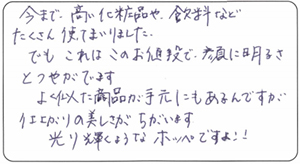 今まで、高い化粧品や、飲料など
たくさん使てまいりました。
でも これは このお値段で、顔に明るさ
とつやがでます
よく似た商品が手元にもあるんですが
仕上がりの美しさが ちがいます
光り輝くような ホッペですよ!!